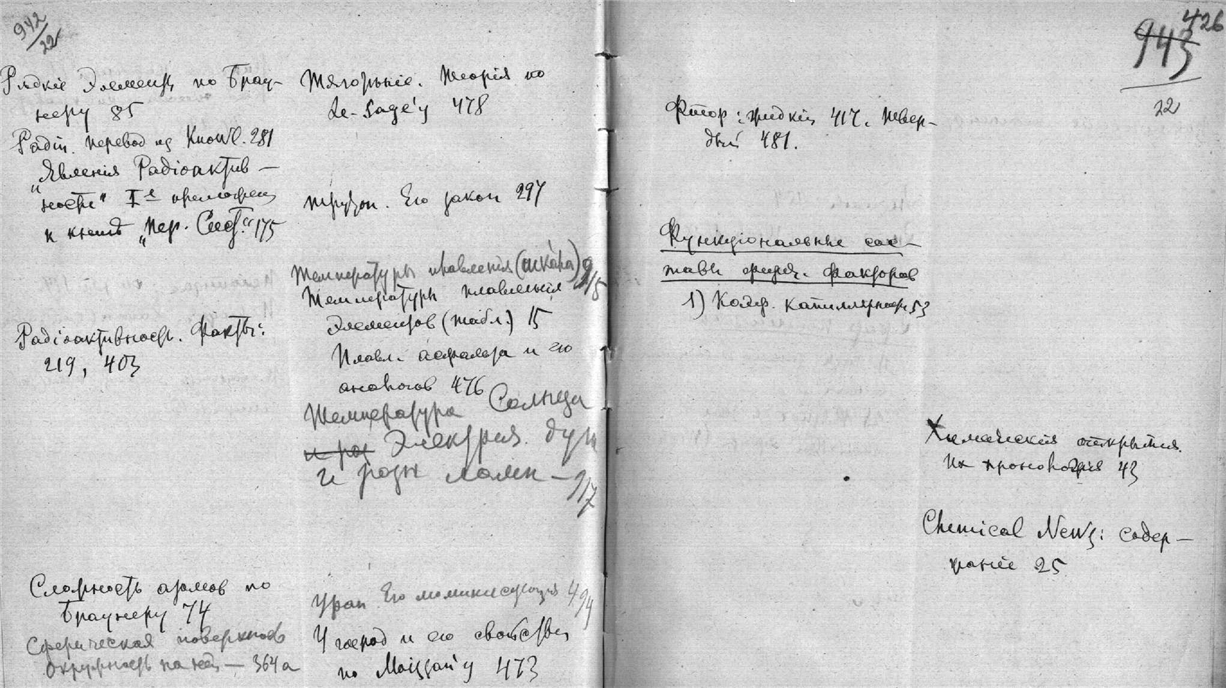 942/22
Рѣдкіе Элементы по Брау-
неру 85
Радій. Перевод из Knowl. 281
"Явленія Радіоактив-
ности"
к книгѣ „Пер. 175
Радіоактивность. Факты:
219, 403
Сложность атомов по
Браунеру 74
Сферическая поверхность
Окружность на ней — 364а
Тяготѣніе. Теорія по
Le-Sage'у 478
Трузон. Его закон 297
Температуры плавленія (шкала) 915
Температуры плавленія
Элементов (табл.) 15
Плавл. и его
аналогов 476
Температура Солнца
Электрич. дуги
и ламп — 917
Уран Его 494
Углерод и его свойства
по Moissan'у 473
426
943
22
Фтор: жидкій 417. Твер-
дый 481.
Функціональные сос-
тавы физич. факторов
1) Коэф. капиллярност. 53
Химическія открытія.
Их хронологія 43
Chemical News: содер-
жаніе 25